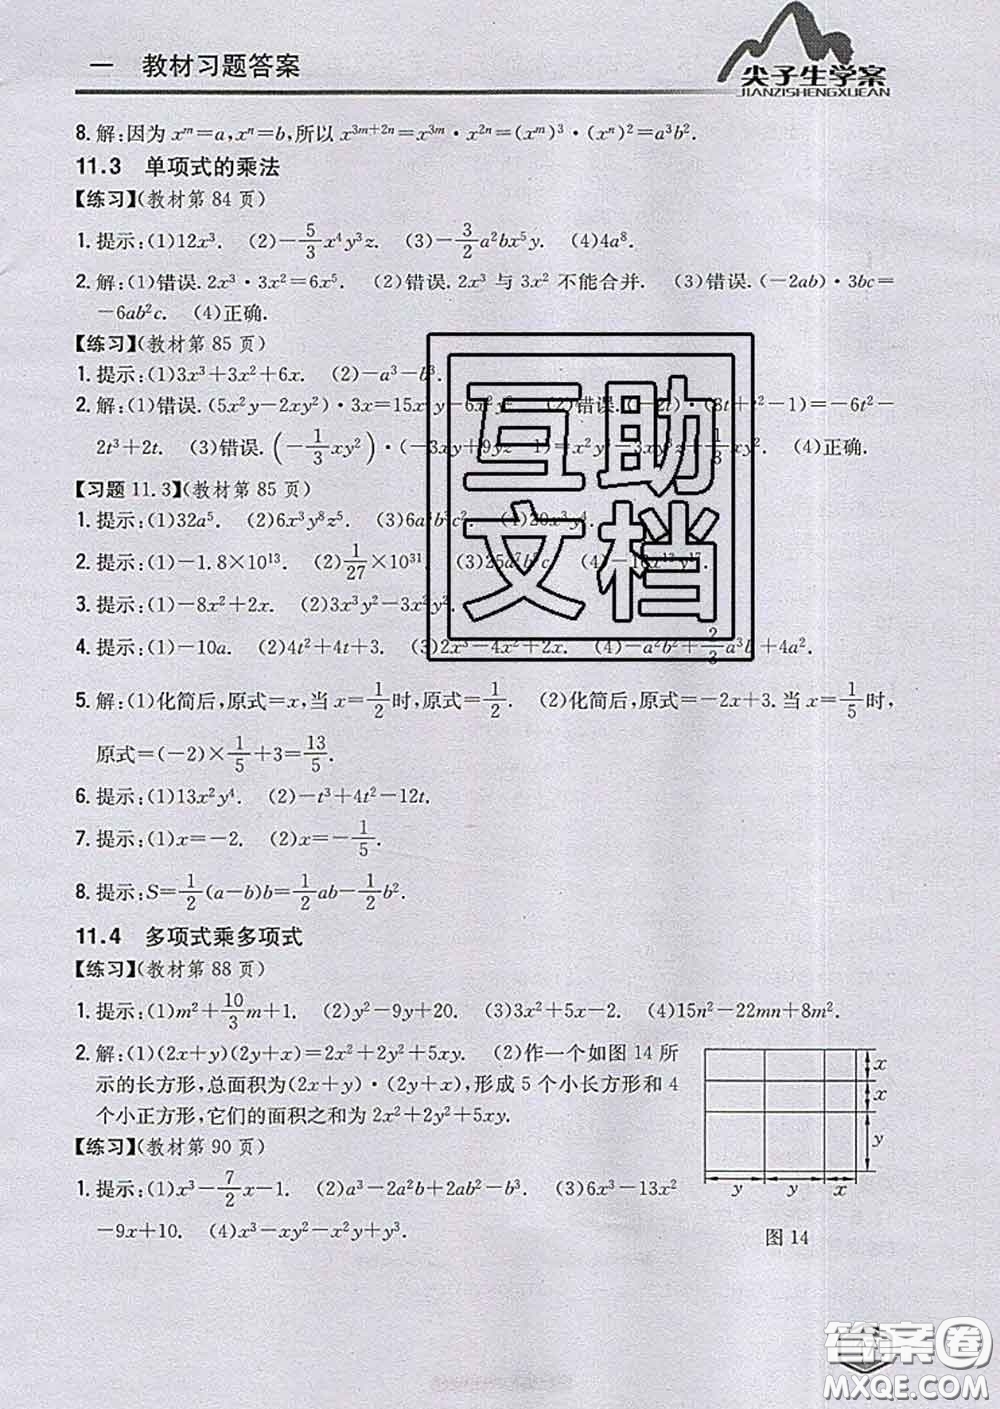 一 教材习题答案
尖子生学案
JIANZISHENGXUEAN
8.解:因为 xᵐ=a,xⁿ=b,所以 x³ᵐ⁺²ⁿ=x³ᵐ·x²ⁿ=(xᵐ)³·(xⁿ)²=a³b².
11.3 单项式的乘法
【练习】(教材第 84 页)
1.提示:(1)12x³. (2)-5/3x⁴y³z. (3)-3/2a²bx⁵y. (4)4a⁸.
2.解:(1)错误.2x³·3x²=6x⁵. (2)错误.2x³ 与 3x² 不能合并. (3)错误.(-2ab)·3bc=
-6ab²c. (4)正确.
【练习】(教材第 85 页)
1.提示:(1)3x³+3x²+6x. (2)-a³-b³.
2.解:(1)错误.(5x²y-2xy²)·3x=15x³y-6x²y². (2)错误.(-2t)·(3t+t²-1)=-6t²-
2t³+2t. (3)错误.(-1/3xy²)·(-3xy+9yz-1)=x²y³-3xy³z+1/3xy². (4)正确.
【习题 11.3】(教材第 85 页)
1.提示:(1)32a⁵. (2)6x³y⁸z⁵. (3)6a b³c². (4)20x³y⁴.
2.提示:(1)-1.8×10¹³. (2)1/27×10³¹. (3)25a⁷b³c. (4)-16x¹³y¹⁷.
3.提示:(1)-8x²+2x. (2)3x³y²-3x²y³.
4.提示:(1)-10a. (2)4t²+4t+3. (3)2x³-4x²+2x. (4)-a²b²+2/3a³b+4a².
5.解:(1)化简后,原式=x,当 x=1/2时,原式=1/2. (2)化简后,原式=-2x+3.当 x=1/5时,
原式=(-2)×1/5+3=13/5.
6.提示:(1)13x²y⁴. (2)-t³+4t²-12t.
7.提示:(1)x=-2. (2)x=-1/5.
8.提示:S=1/2(a-b)b=1/2ab-1/2b².
11.4 多项式乘多项式
【练习】(教材第 88 页)
1.提示:(1)m²+10/3m+1. (2)y²-9y+20. (3)3x²+5x-2. (4)15n²-22mn+8m².
2.解:(1)(2x+y)(2y+x)=2x²+2y²+5xy. (2)作一个如图 14 所
示的长方形,总面积为(2x+y)·(2y+x),形成 5 个小长方形和 4
个小正方形,它们的面积之和为 2x²+2y²+5xy.
【练习】(教材第 90 页)
1.提示:(1)x³-7/2x-1. (2)a³-2a²b+2ab²-b³. (3)6x³-13x²
-9x+10. (4)x³-xy²-x²y+y³.
x
x
y
y y x
图 14
互助
文档
答案圈
MXQE.COM